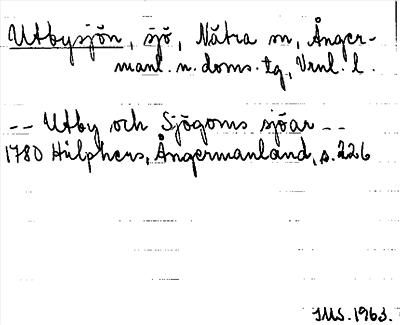 Utbysjön, sjö, Nätra sn, Ånger-
manl. n. doms. tg, Vrnl. l.
-- Utby och Sjögoms sjöar --
1780 Hülphers, Ångermanland, s. 226
IMS. 1963.